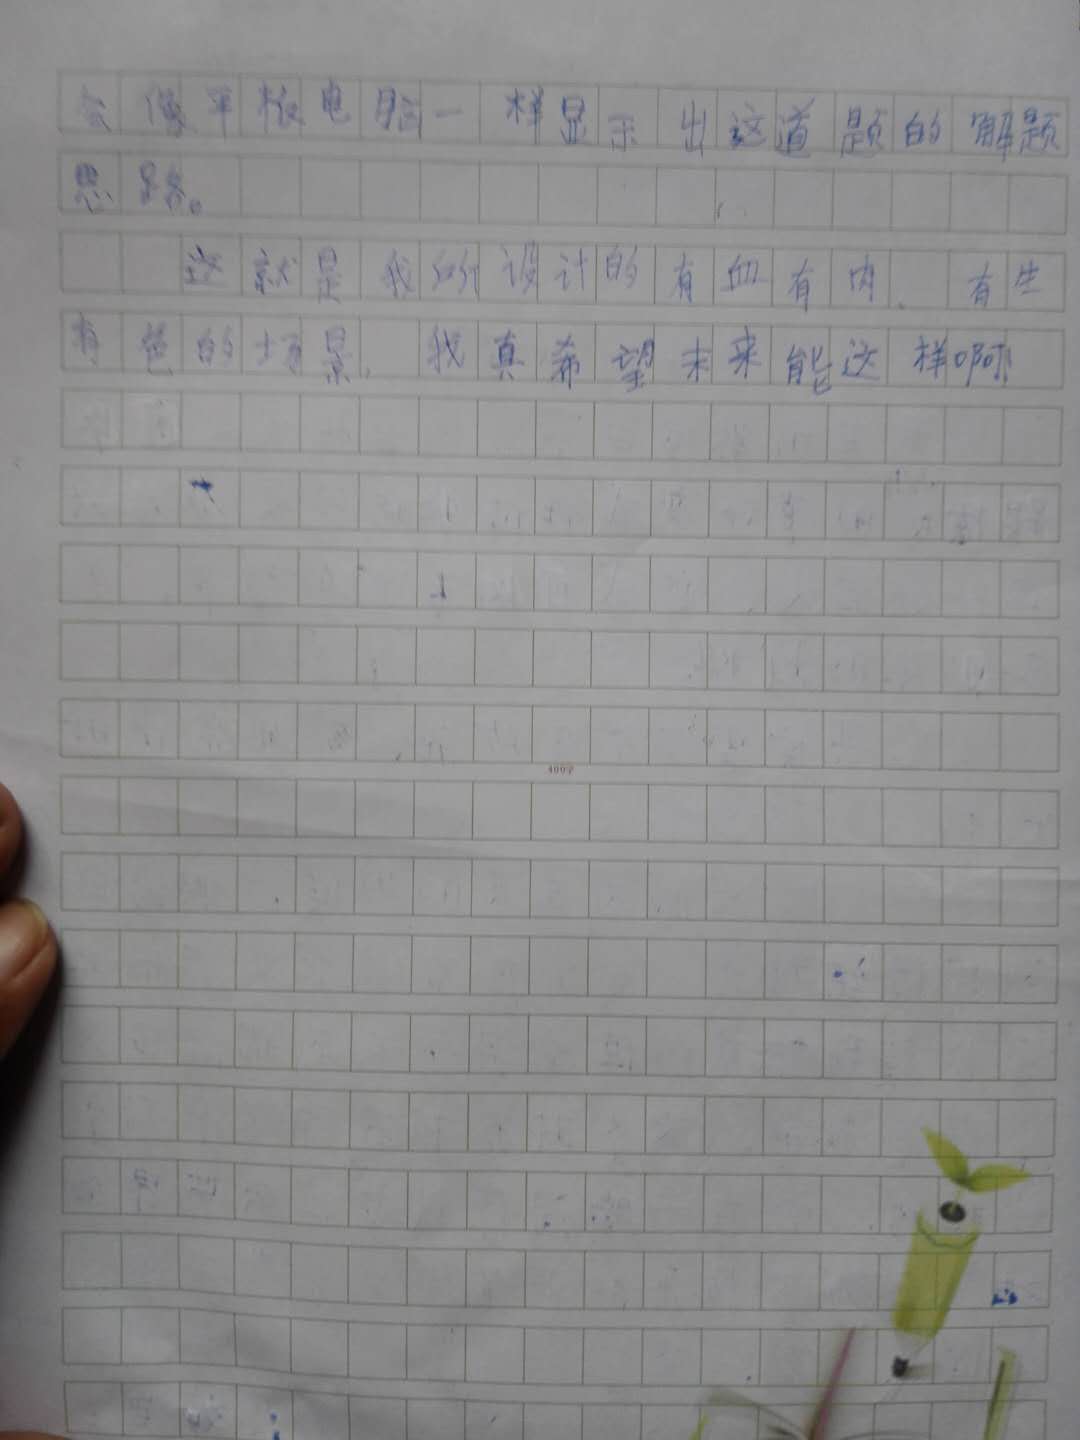 会像平板电脑一样显示出这道题的解题
思路。
这就是我所设计的有血有肉、有生
有色的场景,我真希望未来能这样啊
400字